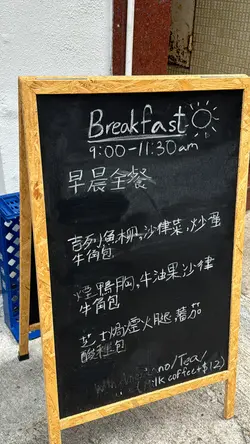 Breakfast
9:00-11:30am
早晨全餐
吉列魚柳,沙律菜,炒蛋
牛角包
煙鴨胸,牛油果沙律
牛角包
芝士焗煙火腿,蕃茄
酸種包
no/Tea/
lk coffee+$12)